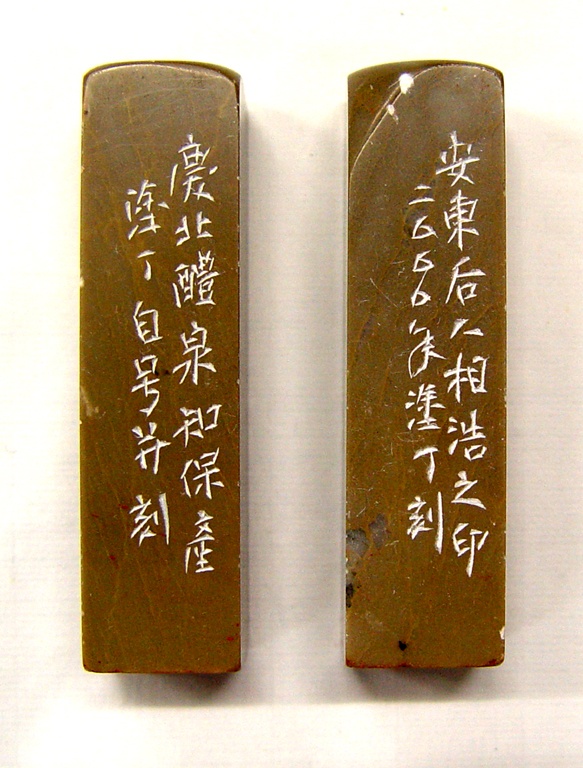 慶北醴泉知保產
塗丁自号并刻
安東后人相浩之印
二〇〇〇年塗丁刻